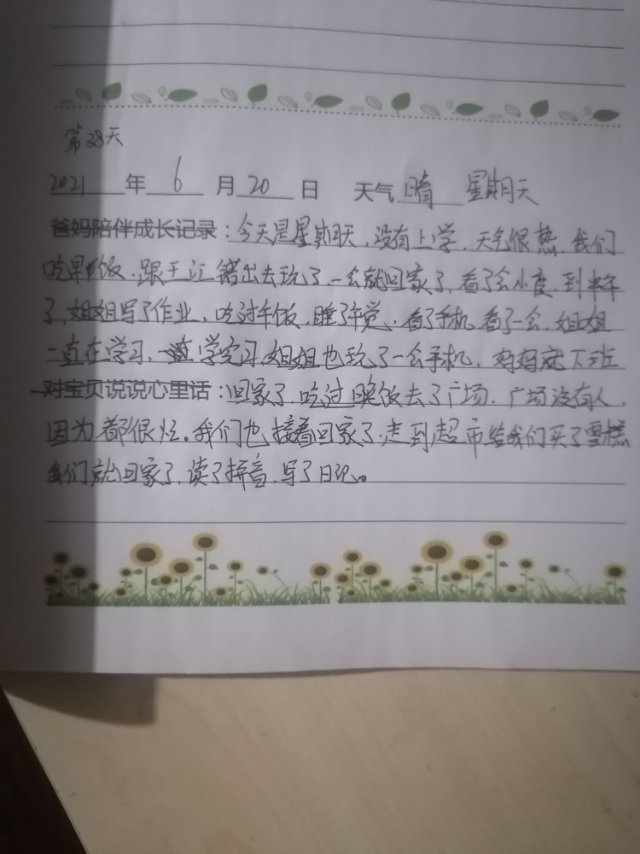 第38天
2021年6月20日 天气晴 星期天
爸妈陪伴成长记录：今天是星期天，没有上学，天气很热，我们
吃早饭，跟王江出去玩了一会就回家了，看了会小度，到中午
了，姐姐写了作业，吃过午饭，睡了午觉，看了手机看了一会，姐姐
一直在学习，学完习姐姐也玩了一会手机，妈妈就下班
对宝贝说说心里话：回家了，吃过晚饭去了广场，广场没有人，
因为都很忙。我们也接着回家了，走到超市给我们买了雪糕
我们就回家了，读了拼音，写了日记。